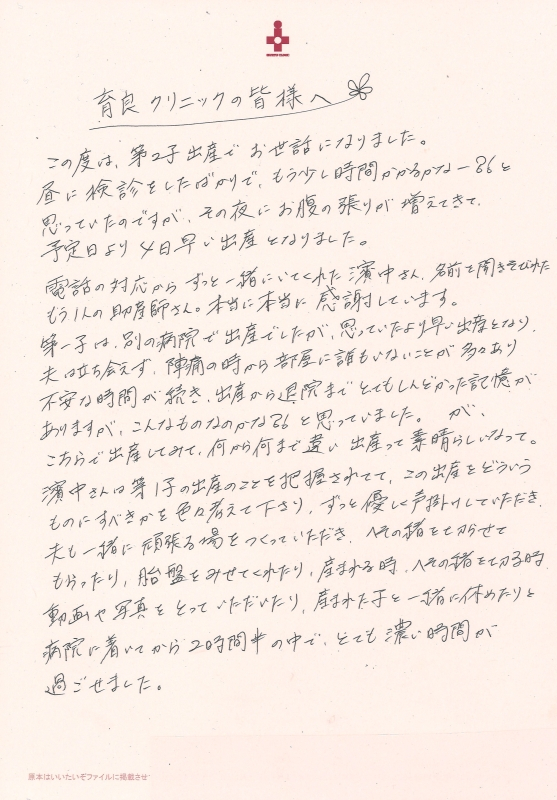 育良クリニックの皆様へ
この度は、第2子出産でお世話になりました。
昼に検診をしたばかりで、もう少し時間かかるかなー??と
思っていたのですが、その夜にお腹の張りが増えてきて、
予定日より4日早い出産となりました。
電話の対応からずっと一緒にいてくれた濱中さん、名前を聞きそびれた
もう1人の助産師さん。本当に本当に感謝しています。
第一子は、別の病院で出産でしたが、思っていたより早い出産となり、
夫は立ち会えず、陣痛の時から部屋に誰もいないことが多々あり
不安な時間が続き、出産から退院までとてもしんどかった記憶が
ありますが、こんなものなのかな??と思っていました。が、
こちらで出産してみて、何から何まで違い出産って素晴らしいなって。
濱中さんは第1子の出産のことを把握されてて、この出産をどういう
ものにすべきかを色々考えて下さり、ずっと優しく声掛けしていただき、
夫も一緒に頑張る場をつくっていただき、へその緒を切らせて
もらったり、胎盤をみせてくれたり、産まれる時、へその緒を切る時、
動画や写真をとっていただいたり、産まれた子と一緒に休めたりと
病院に着いてから2時間半の中で、とても濃い時間が
過ごせました。
原本はいいたいぞファイルに掲載させ